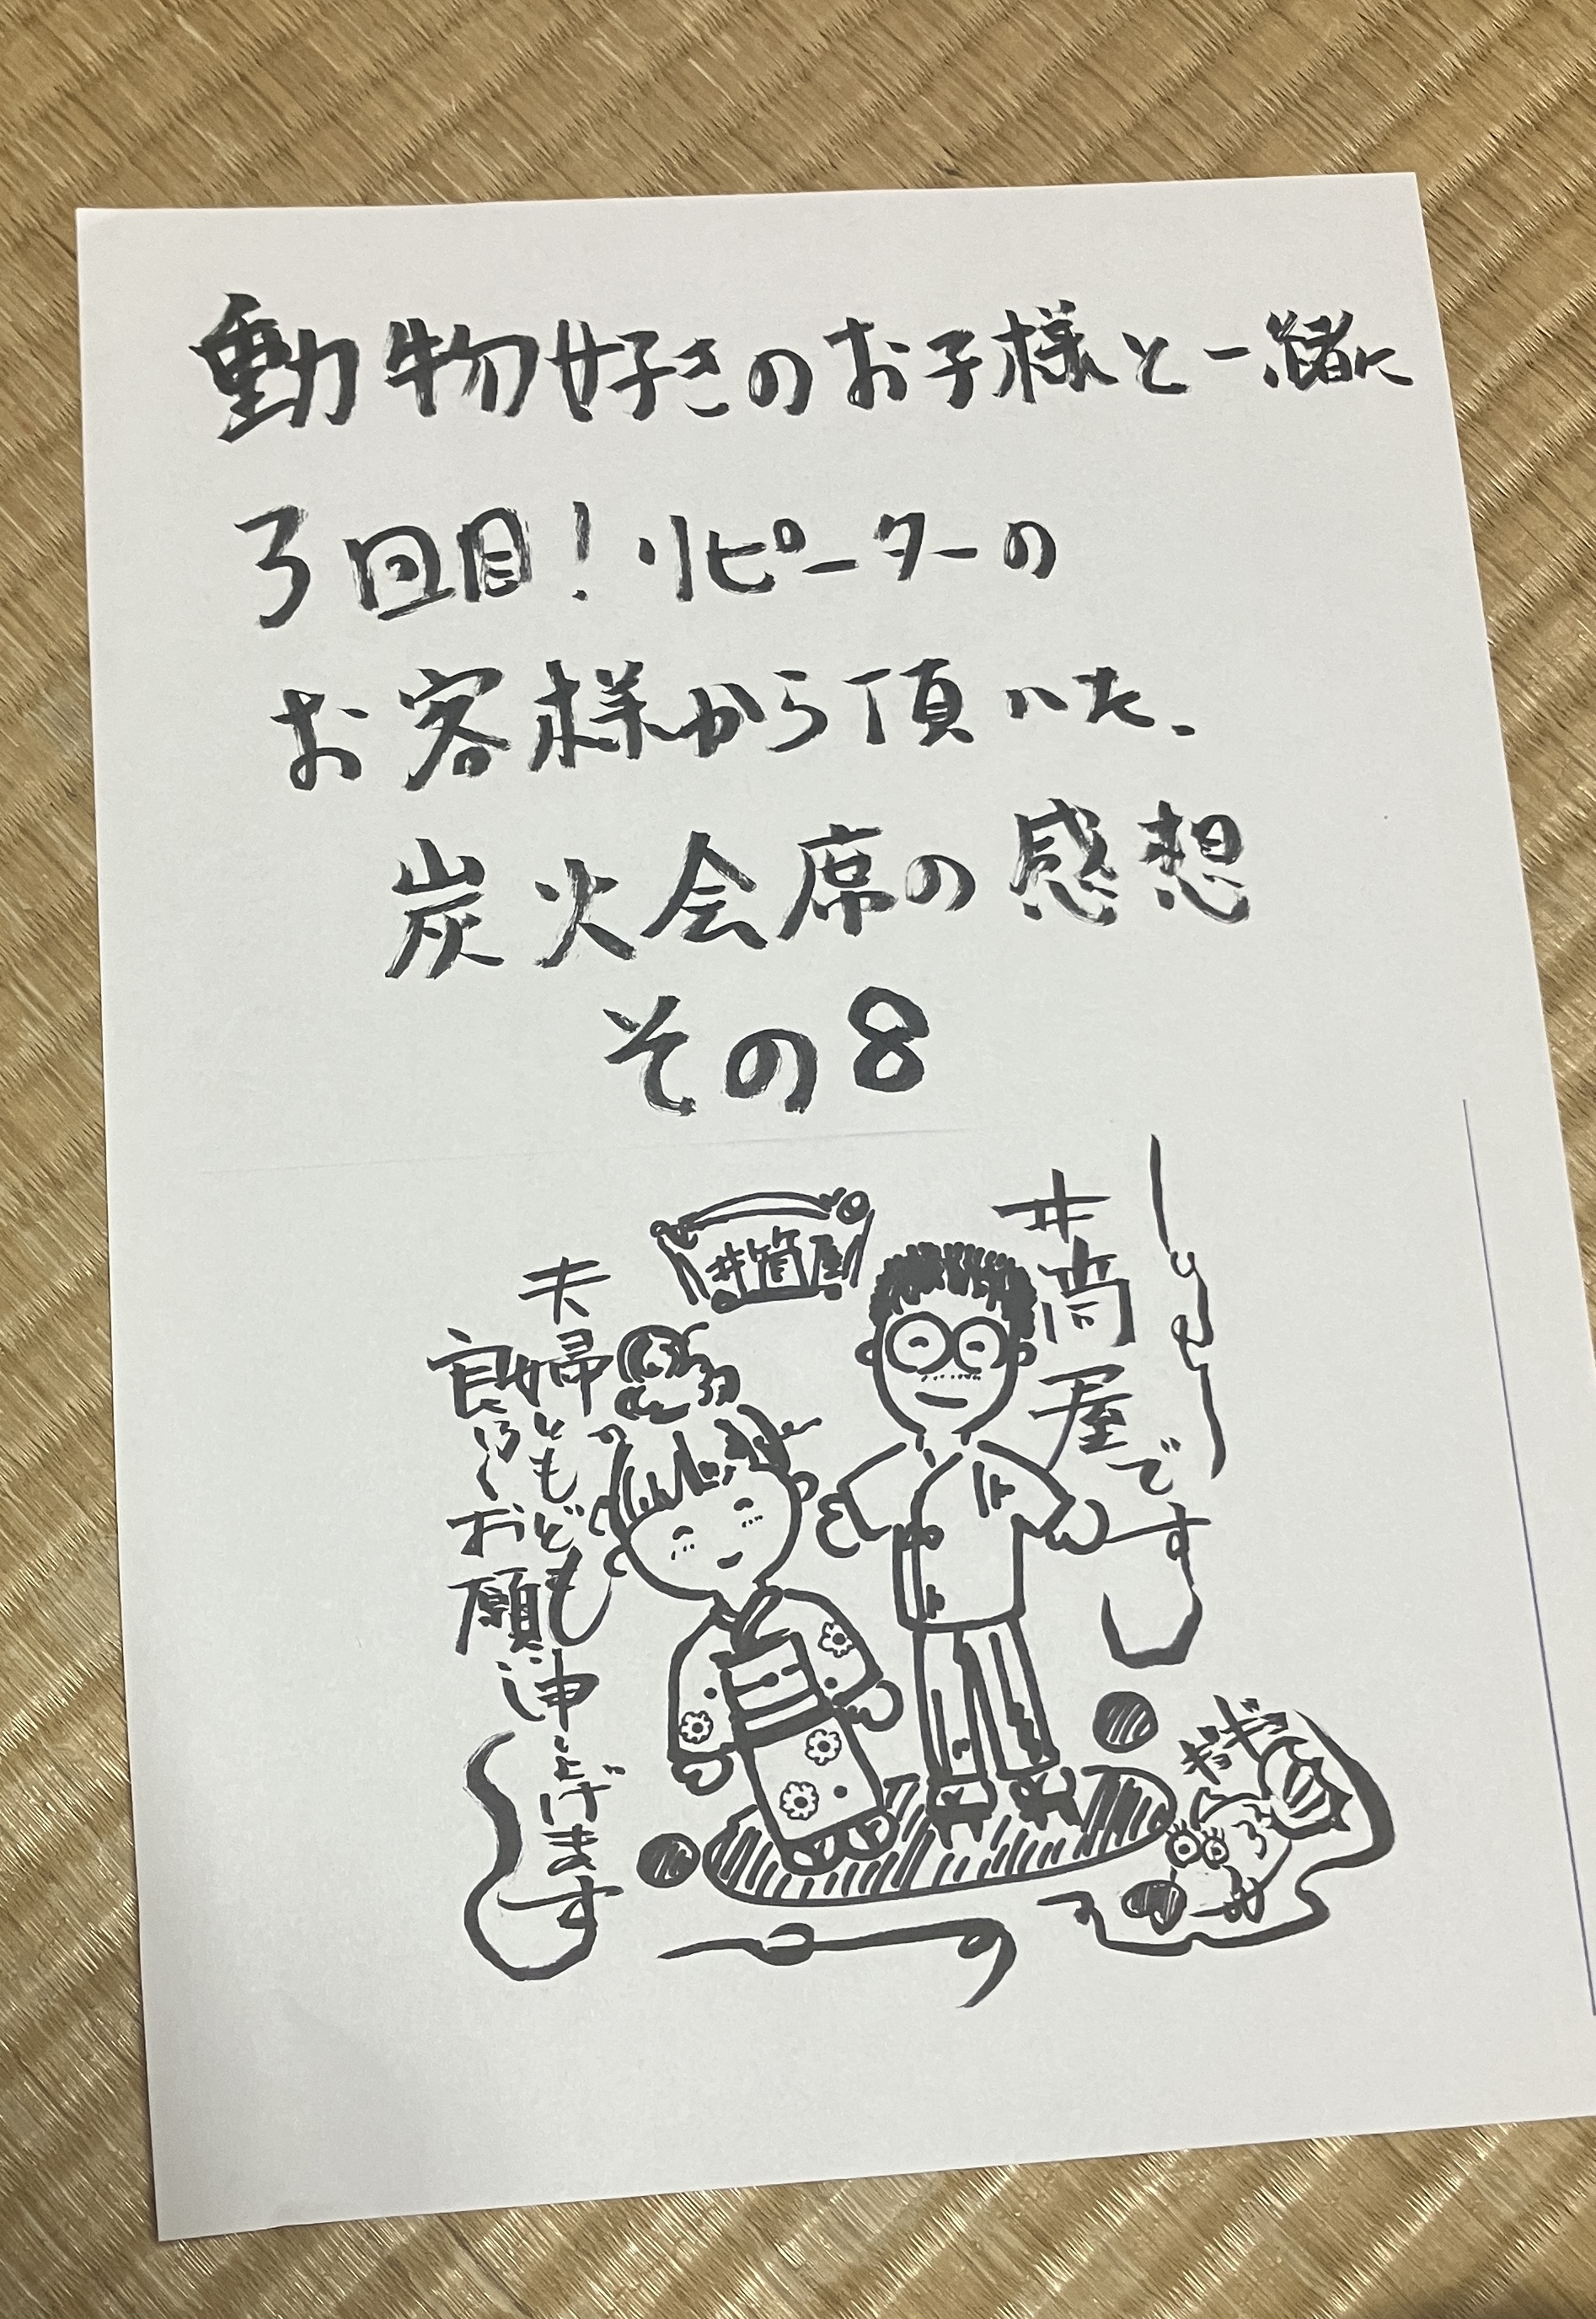 動物好きのお子様と一緒に
3回目！リピーターの
お客様から頂いた、
炭火会席の感想
その8
井筒屋
井筒屋です
夫婦ともども
良ろしくお願い申し上げます
ギョギョ